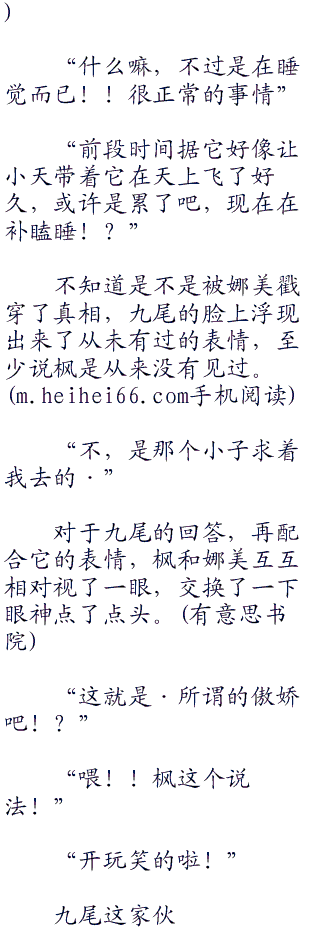 )
“什么嘛，不过是在睡
觉而已！！很正常的事情”
“前段时间据它好像让
小天带着它在天上飞了好
久，或许是累了吧，现在在
补瞌睡！？”
不知道是不是被娜美戳
穿了真相，九尾的脸上浮现
出来了从未有过的表情，至
少说枫是从来没有见过。
(m.heihei66.com手机阅读)
“不，是那个小子求着
我去的·”
对于九尾的回答，再配
合它的表情，枫和娜美互互
相对视了一眼，交换了一下
眼神点了点头。(有意思书
院)
“这就是·所谓的傲娇
吧！？”
“喂！！枫这个说
法！”
“开玩笑的啦！”
九尾这家伙